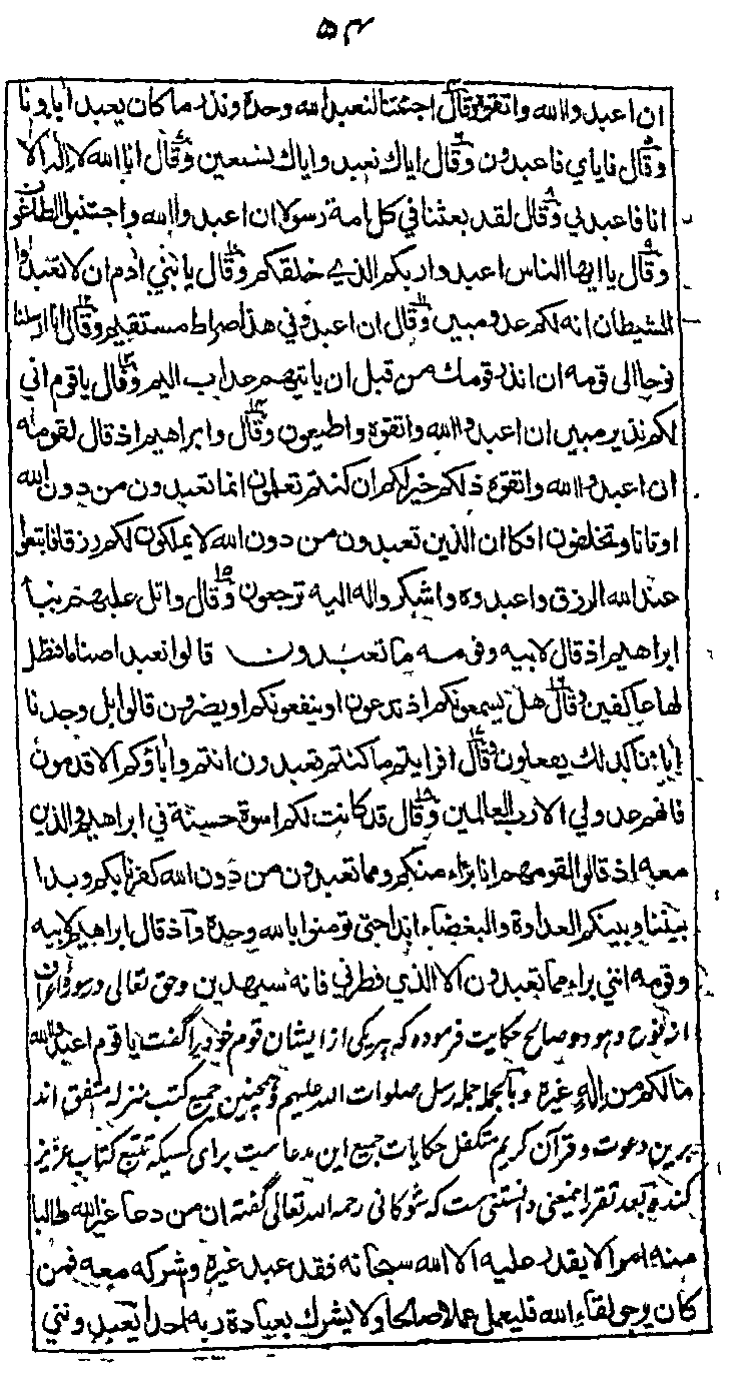 ۵۴
ان اعبدوا الله واتقوه وقال اجئتنا لنعبد الله وحده ونذر ما كان يعبد اباونا
وقال فاياي فاعبدون وقال اياك نعبد واياك نستعين وقال انا الله لا اله الا
انا فاعبدني وقال لقد بعثنا في كل امة رسولا ان اعبدوا الله واجتنبوا الطاغوت
وقال يا ايها الناس اعبدوا ربكم الذي خلقكم وقال يا بني ادم ان لا تعبدوا
الشيطان انه لكم عدو مبين وقال ان اعبدوني هذا صراط مستقيم وقال انا ارسلنا
نوحا الى قومه ان انذر قومك من قبل ان ياتيهم عذاب اليم وقال يا قوم اني
لكم نذير مبين ان اعبدوا الله واتقوه واطيعون وقال وابراهيم اذ قال لقومه
ان اعبدوا الله واتقوه ذلكم خير لكم ان كنتم تعلمون انما تعبدون من دون الله
اوثانا وتخلقون افكا ان الذين تعبدون من دون الله لا يملكون لكم رزقا فابتغوا
عند الله الرزق واعبدوه واشكروا له اليه ترجعون وقال واتل عليهم نبأ
ابراهيم اذ قال لابيه وقومه ما تعبدون قالوا نعبد اصناما فنظل
لها عاكفين وقال هل يسمعونكم اذ تدعون او ينفعونكم او يضرون قالوا بل وجدنا
اباءنا كذلك يفعلون وقال افرايتم ما كنتم تعبدون انتم واباؤكم الاقدمون
فانهم عدو لي الا رب العالمين وقال قد كانت لكم اسوة حسنة في ابراهيم والذين
معه اذ قالوا لقومهم انا براء منكم ومما تعبدون من دون الله كفرنا بكم وبدا
بيننا وبينكم العداوة والبغضاء ابدا حتى تومنوا بالله وحده واذ قال ابراهيم لابيه
وقومه انني براء مما تعبدون الا الذي فطرني فانه سيهدين وحق تعالى در سورۂ اعراف
از نوح وهود وصالح حکایت فرموده که هر یکی از ایشان قوم خود را گفت یا قوم اعبدوا الله
مالكم من اله غيره وبالجمله جمله رسل صلوات الله علیهم وهمچنین جمیع کتب منزله متفق اند
برین دعوت وقرآن کریم متکفل حکایات جمیع این مدعاست برای کسیکه تتبع کتاب عزیز
کند و بعد تقرر اینمعنی دانستنی ست که شوکانی رحمه الله تعالی گفته ان من دعا غير الله طالبا
منه امرا لا يقدر عليه الا الله سبحانه فقد عبد غيره وشركه معه فمن
كان يرجو لقاء الله فليعمل عملا صالحا ولا يشرك بعبادة ربه احدا يعبدونني